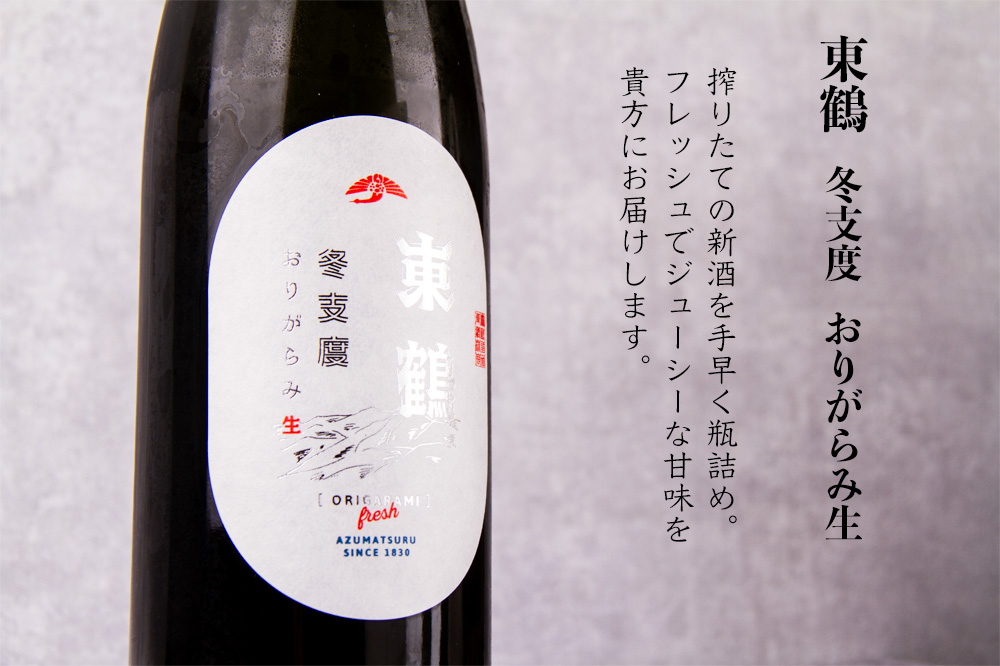 東鶴　冬支度　おりがらみ生
搾りたての新酒を手早く瓶詰め。
フレッシュでジューシーな甘味を
貴方にお届けします。
東鶴
冬支度
おりがらみ生
[ ORIGARAMI ]
fresh
AZUMATSURU
SINCE 1830